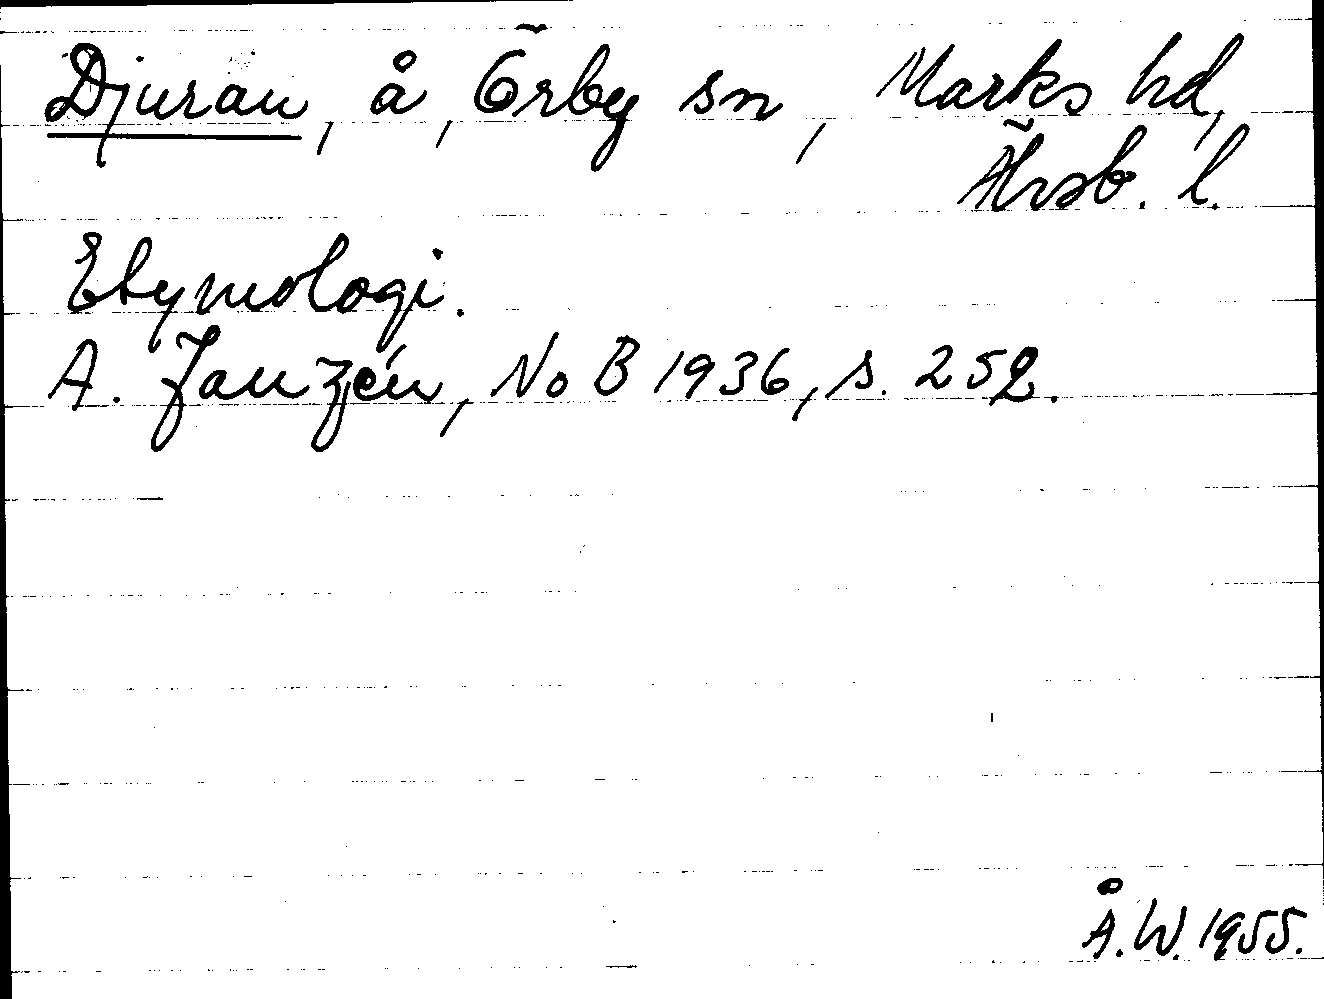 Djuran, å, Örby sn, Marks hd,
Älvsb. l.
Etymologi.
A. Janzén, NoB 1936, s. 252.
Å.W. 1955.